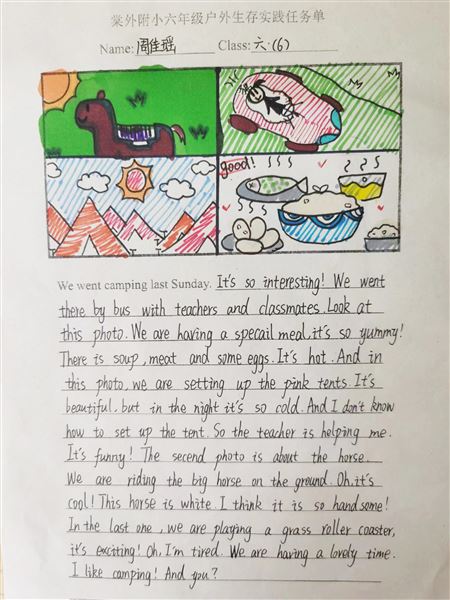 棠外附小六年级户外生存实践任务单
Name: 周佳瑶 Class: 六.(6)
good!
We went camping last Sunday. It's so interesting! We went
there by bus with teachers and classmates. Look at
this photo. We are having a specail meal, it's so yummy!
There is soup, meat and some eggs. It's hot. And in
this photo, we are setting up the pink tents. It's
beautiful, but in the night it's so cold. And I don't know
how to set up the tent. So the teacher is helping me.
It's funny! The secend photo is about the horse.
We are riding the big horse on the ground. Oh, it's
cool! This horse is white. I think it is so handsome!
In the last one, we are playing a grass roller coaster,
it's exciting! Oh, I'm tired. We are having a lovely time.
I like camping! And you?